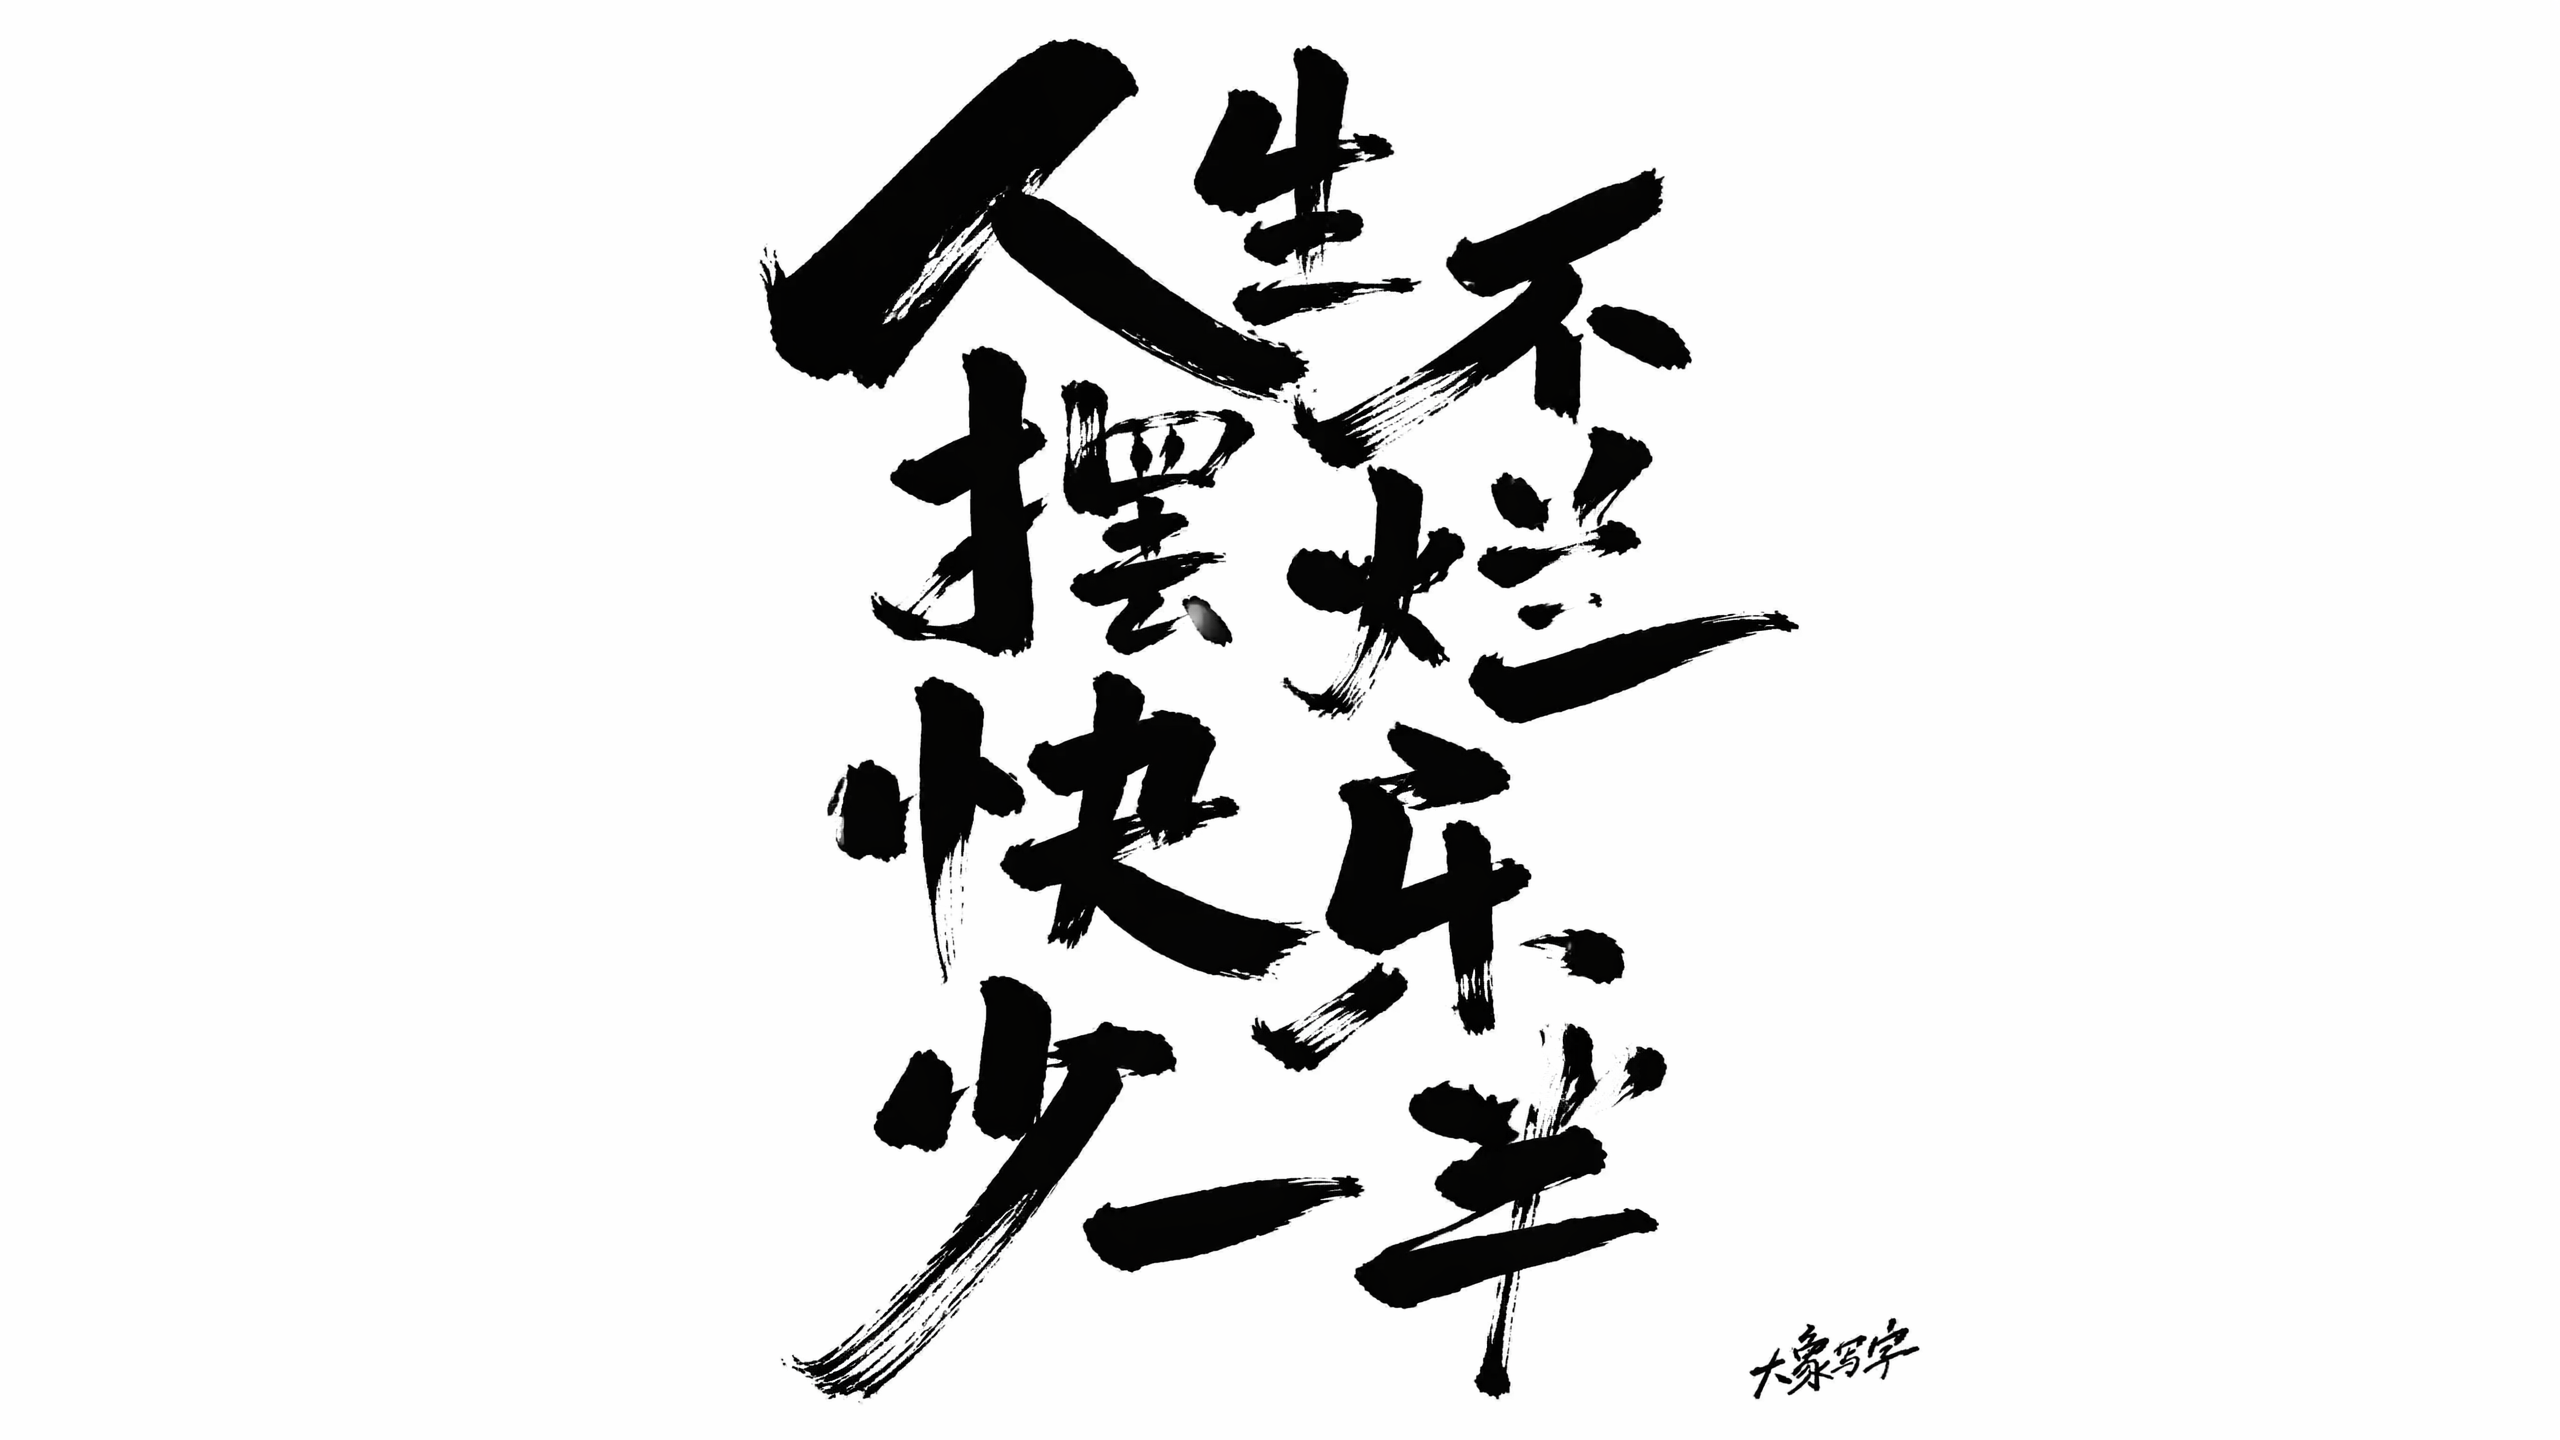 人生不
摆烂
快乐
少一半
大象写字